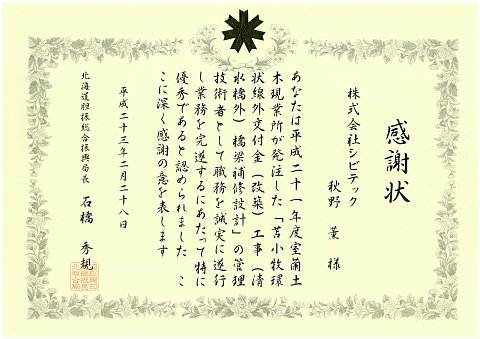 感謝状
株式会社シビテック
秋野 薫 様
あなたは平成二十一年度室蘭土
木現業所が発注した「苫小牧環
状線外交付金(改築)工事(清
水橋外)橋梁補修設計」の管理
技術者として職務を誠実に遂行
し業務を完遂するにあたって特に
優秀であると認められました こ
こに深く感謝の意を表します
平成二十三年二月二十八日
北海道胆振総合振興局長 石橋 秀規